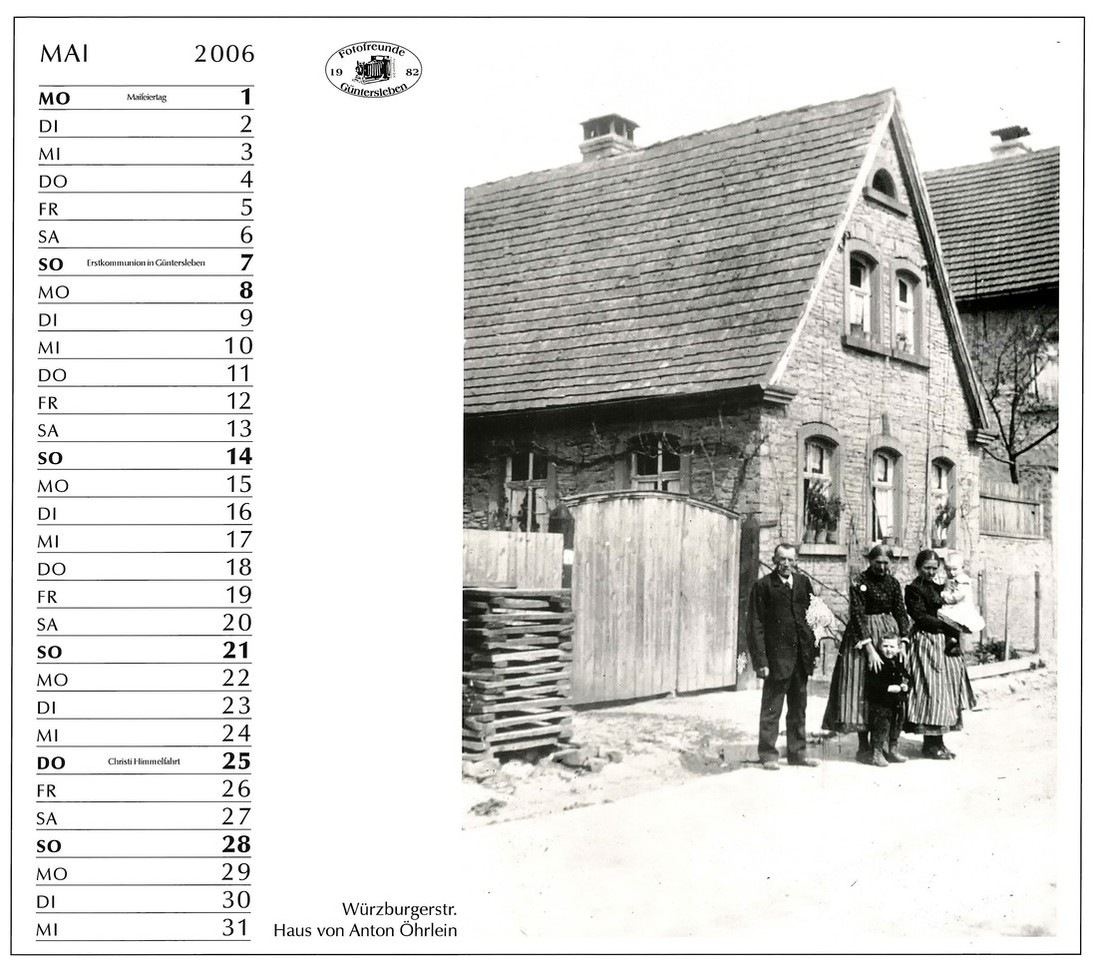 MAI 2006
MO Maifeiertag 1
DI 2
MI 3
DO 4
FR 5
SA 6
SO Erstkommunion in Güntersleben 7
MO 8
DI 9
MI 10
DO 11
FR 12
SA 13
SO 14
MO 15
DI 16
MI 17
DO 18
FR 19
SA 20
SO 21
MO 22
DI 23
MI 24
DO Christi Himmelfahrt 25
FR 26
SA 27
SO 28
MO 29
DI 30
MI 31
Fotofreunde
19 82
Güntersleben
Würzburgerstr.
Haus von Anton Öhrlein